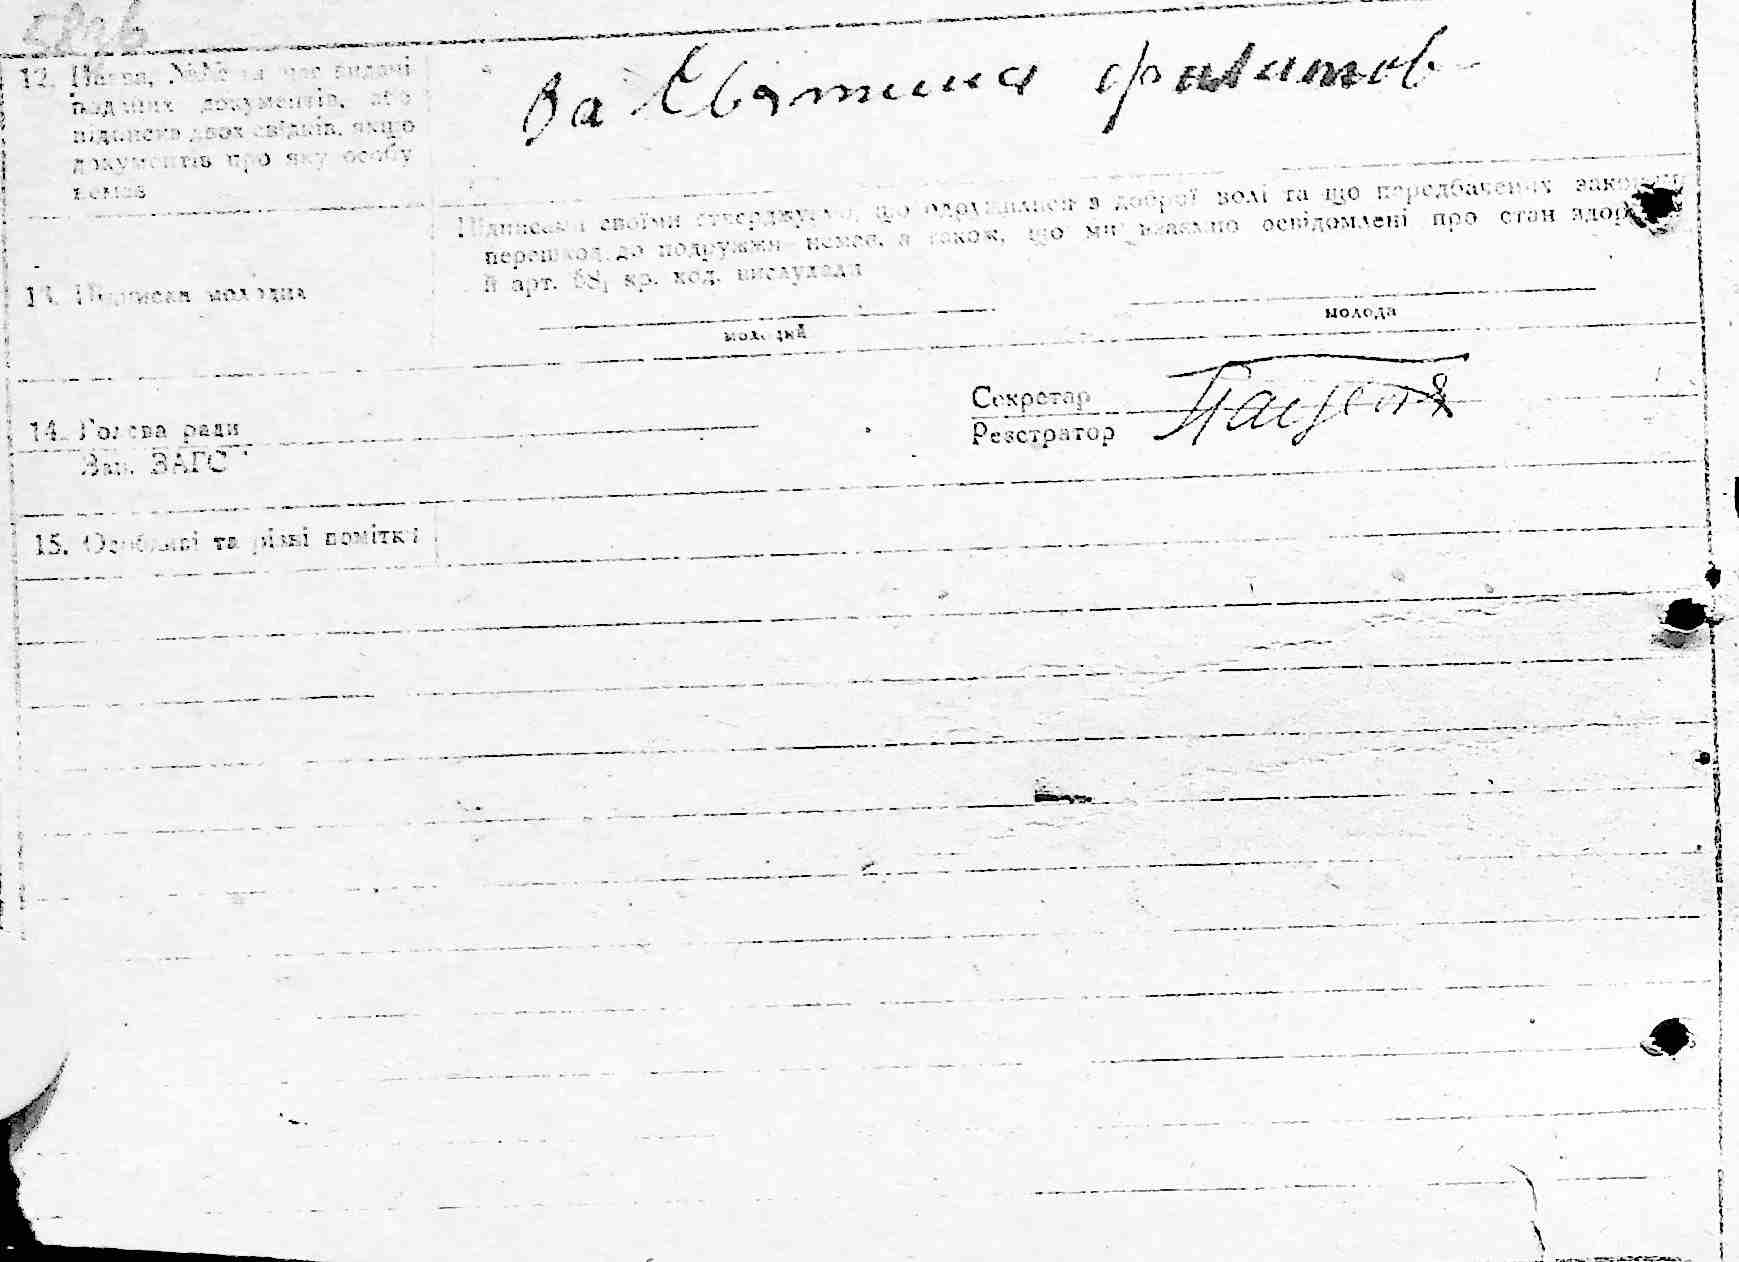 12. Назва, №№ та час видачі
поданих документів, або
підписка двох свідків, якщо
документів про яку особу
немає
За
Підписами своїми стверджуємо, що одружилися з доброї волі та що передбачених законом
перешкод до подружжя немає, а також, що ми взаємно освідомлені про стан здоров
й арт. кр. код. вислухали
13. Підписи молодих
молодий
молода
14. Голова ради
Зав. ЗАГС
Секретар
Реєстратор
15. Особливі та різні помітки